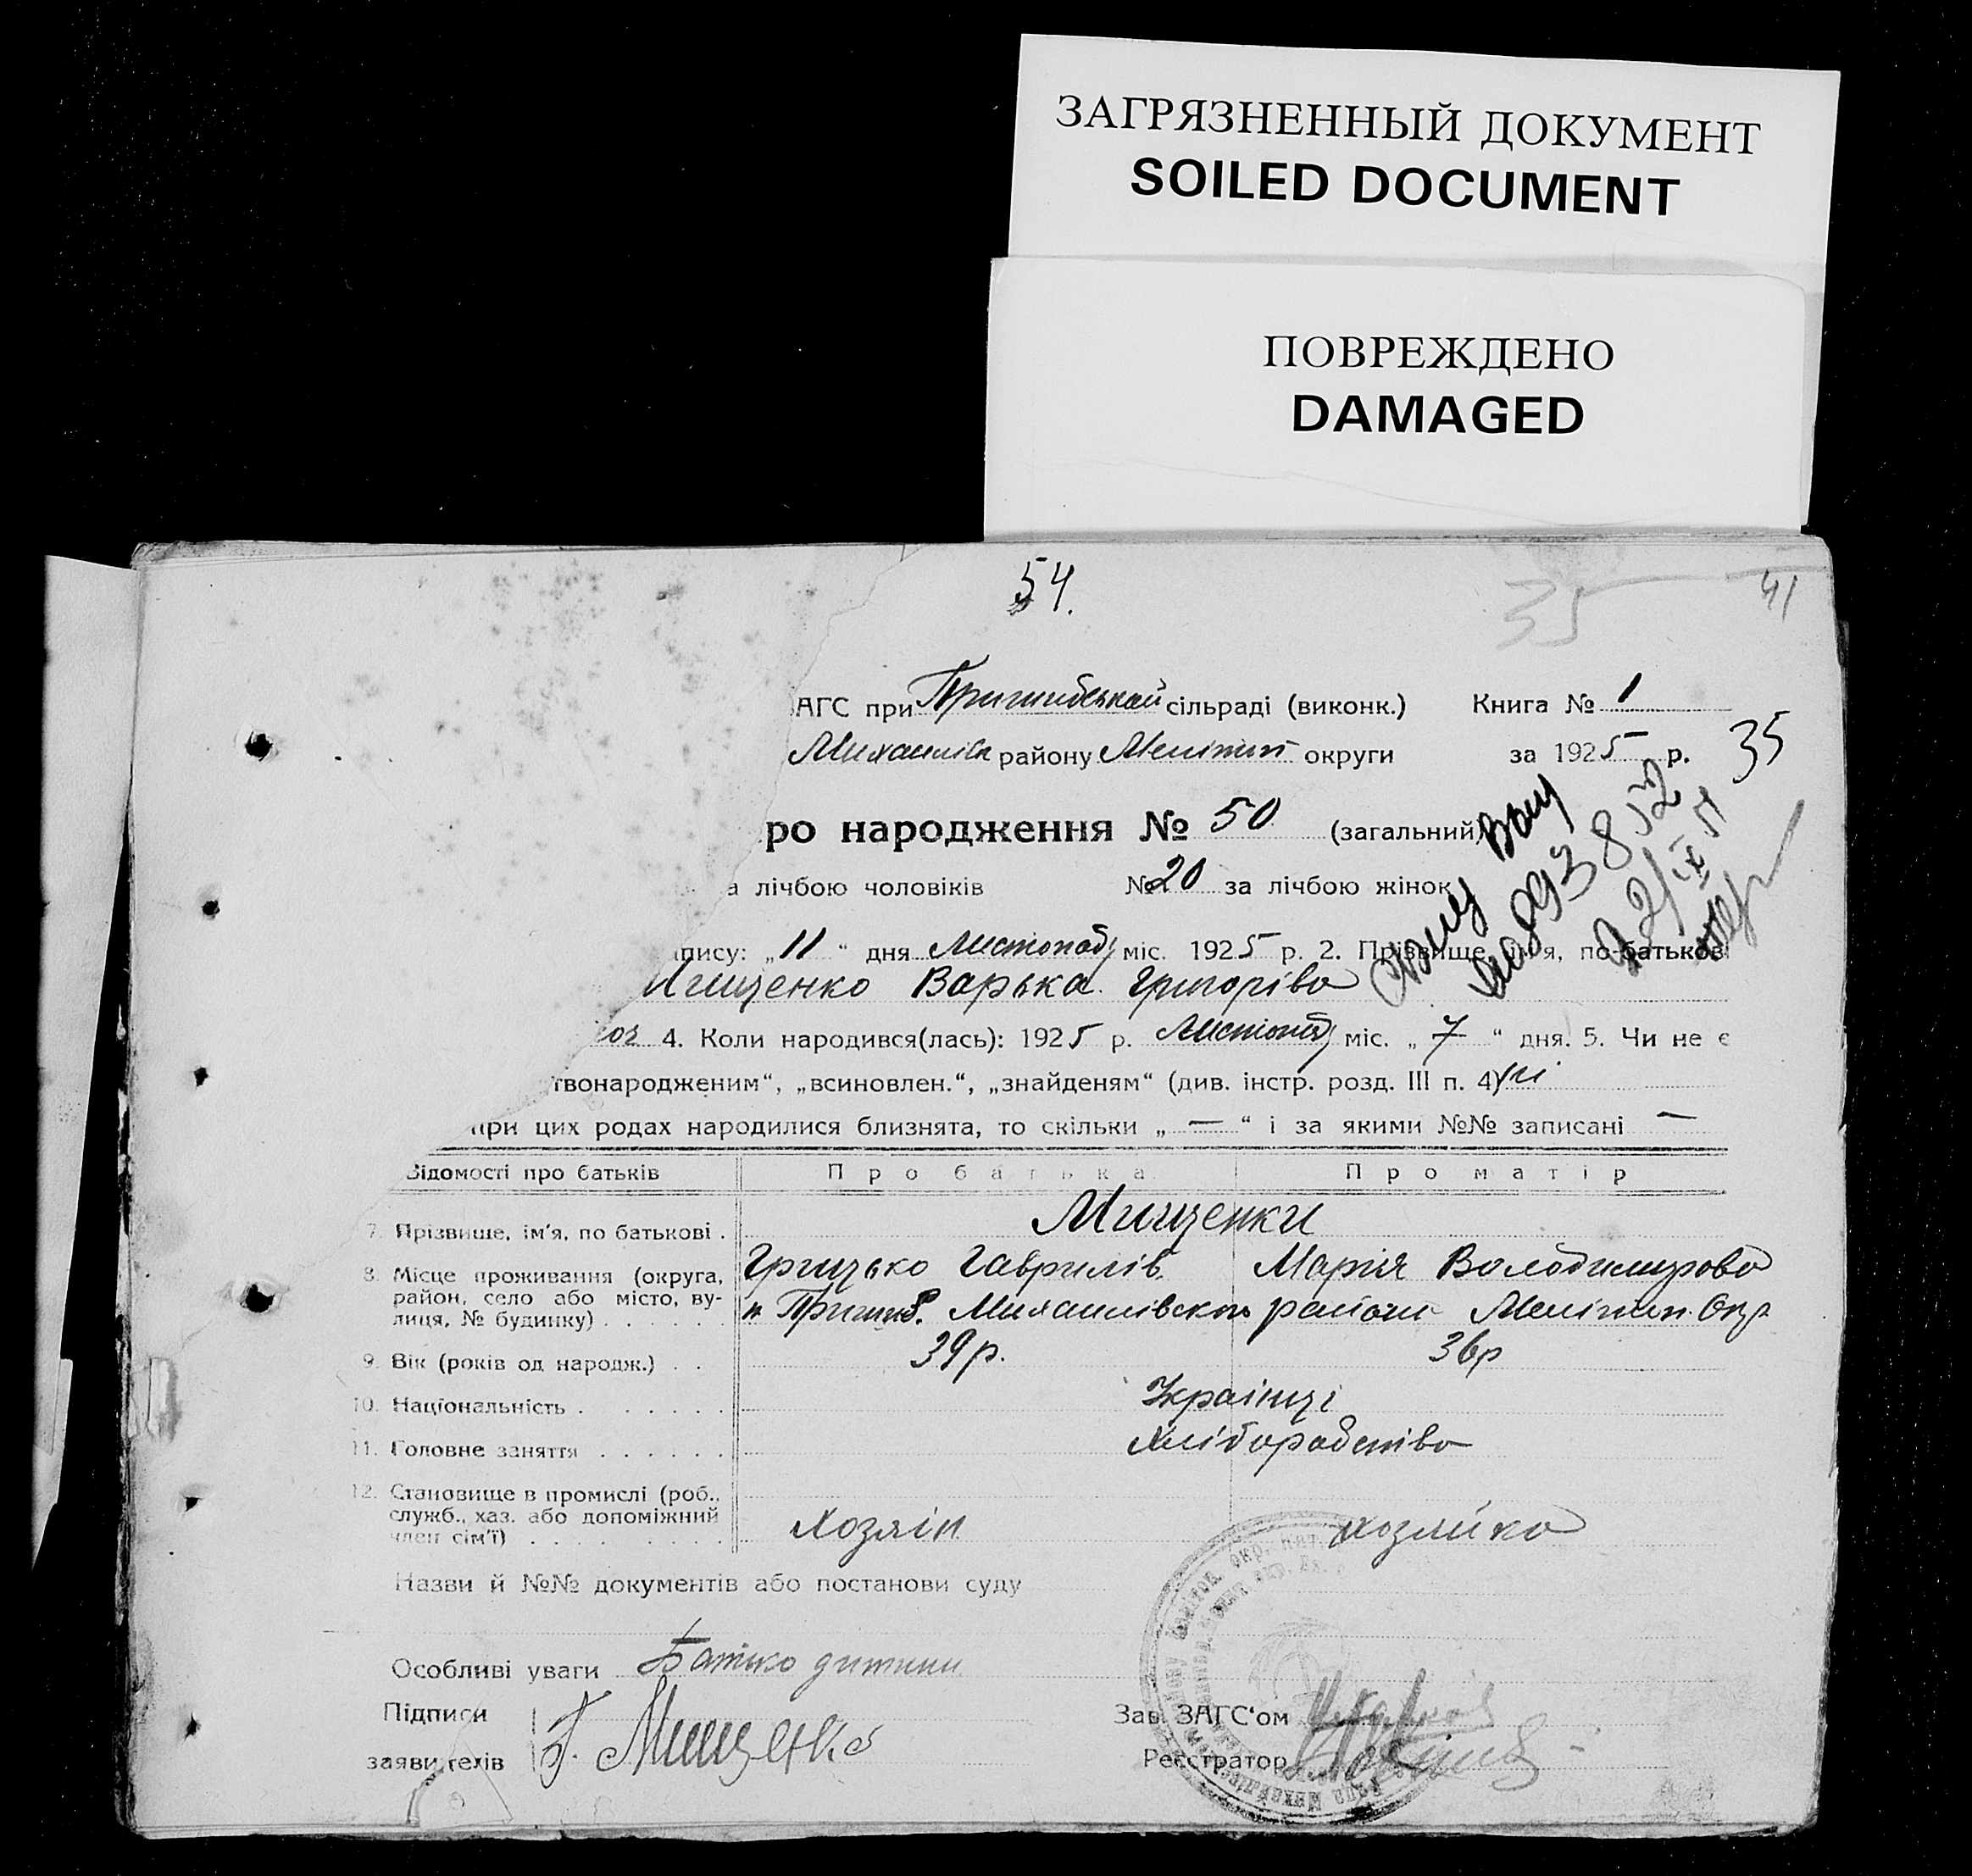 ЗАГРЯЗНЕННЫЙ ДОКУМЕНТ
SOILED DOCUMENT
ПОВРЕЖДЕНО
DAMAGED
54.
35
41
АГС при Пришибській сільраді (виконк.) Книга № 1
Михайлів району Мелітоп округи за 1925 р. 35
ро народження № 50 (загальний)
а лічбою чоловіків № 20 за лічбою жінок
пису: „11“ дня Листопад міс. 1925 р. 2. Прізвище, ім'я, по-батькові
Мищенко Варька Григорівa
іоч 4. Коли народився(лась): 1925 р. Листопад міс. „7“ дня. 5. Чи не є
твонародженим“, „всиновлен.“, „знайденям“ (див. інстр. розд. III п. 4) Ні
при цих родах народилися близнята, то скільки „ — “ і за якими №№ записані —
Відомості про батьків Про батька Про матір
7. Прізвище, ім'я, по батькові . Мищенки
Грицько Гаврилів. Марія Володимирова
8. Місце проживання (округа, район, село або місто, вулиця, № будинку) . . . . . . с. Пришиб. Михайлівськ району Меліноп. Окр
9. Вік (років од народж.) . . 39 р. 36 р
10. Національність . . . . . . Українці
11. Головне заняття . . . . . . Хліборобство
12. Становище в промислі (роб., служб., хаз. або допоміжний член сім'ї) . . . . . . Хозяїн хозяйка
Назви й №№ документів або постанови суду
Особливі уваги Батько дитини
Підписи Зав. ЗАГС'ом
заявителів Г. Мищенко Реєстратор